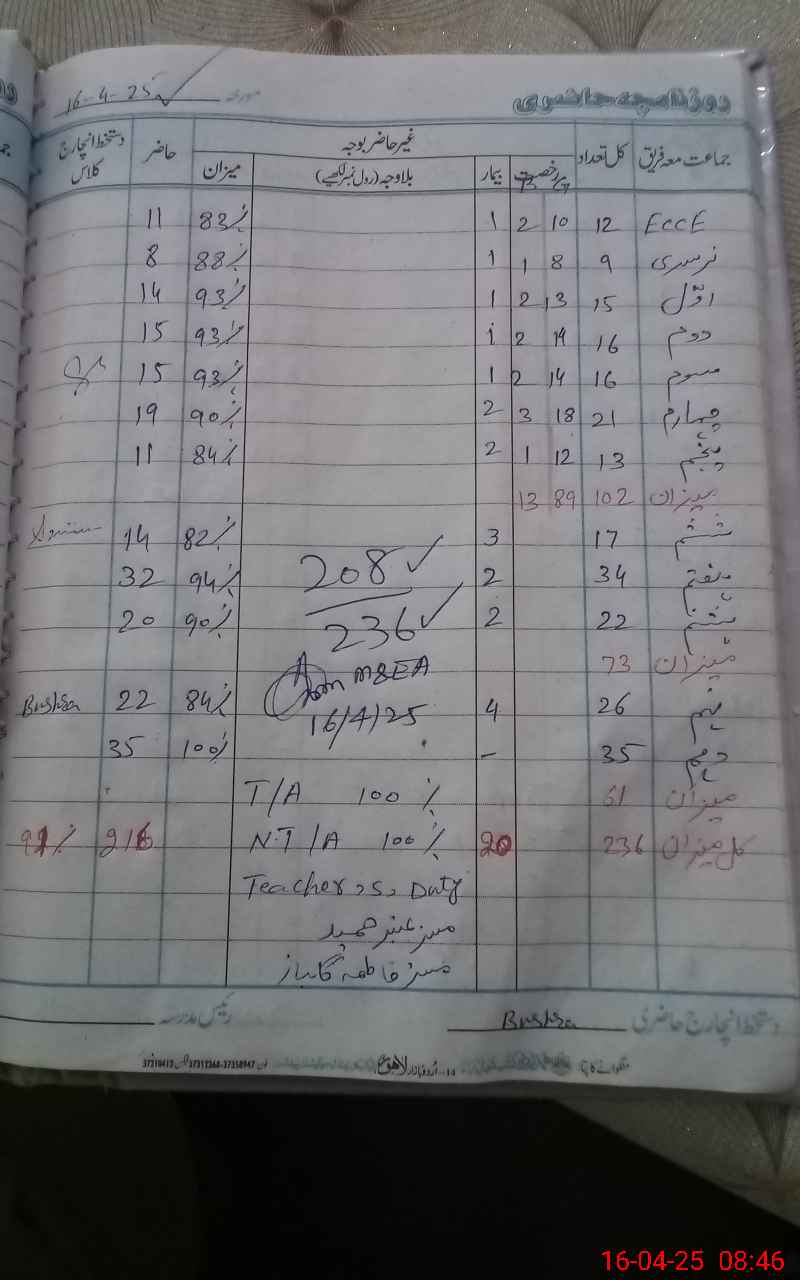 روزنامچہ حاضری مورخہ 16-4-25
جماعت معہ فریق کل تعداد غیر حاضر بوجہ حاضر دستخط انچارج کلاس
رخصت بیمار بلاوجہ (رول نمبر لکھیے) میزان
ECCE 12 10 2 1 83% 11
نرسری 9 8 1 1 88% 8
اوّل 15 13 2 1 93% 14
دوم 16 14 2 1 93% 15
سوم 16 14 2 1 93% 15
چہارم 21 18 3 2 90% 19
پنجم 13 12 1 2 84% 11
میزان 102 89 13
ششم 17 3 82% 14
ہفتم 34 2 94% 32
ہشتم 22 2 90% 20
208
236
میزان 73
M&EA
نہم 26 4 84% 22 Bushra
16/4/25
دہم 35 - 100% 35
میزان 61 T/A 100%
کل میزان 236 20 N.T/A 100% 216 91%
Teacher,s, Duty
مسز عنبر حمید
مسز فاطمہ گلباز
دستخط انچارج حاضری Bushra رئیس مدرسہ
اردو بازار لاہور
16-04-25 08:46